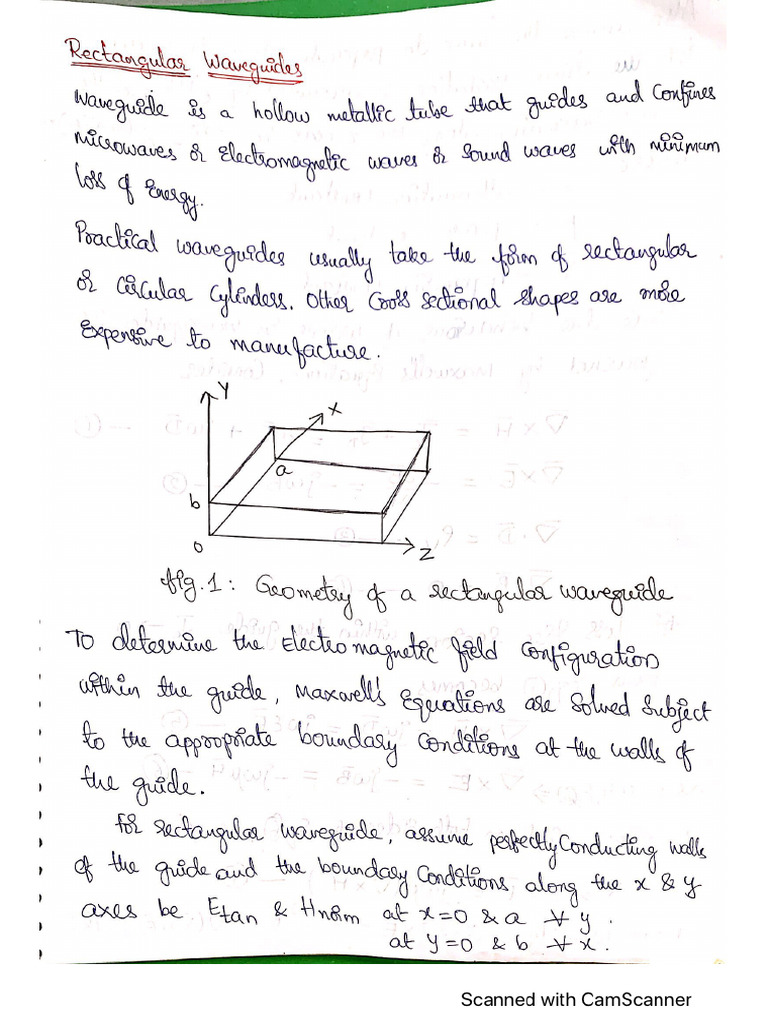 Rectangular Waveguides
Waveguide is a hollow metallic tube that guides and confines
microwaves or Electromagnetic waves or sound waves with minimum
loss of Energy.
Practical waveguides usually take the form of rectangular
or circular cylinders. Other cross sectional shapes are more
Expensive to manufacture.
Y
X
a
b
0
Z
fig.1: Geometry of a rectangular waveguide
To determine the Electromagnetic field configuration
within the guide, Maxwell's Equations are solved subject
to the appropriate boundary conditions at the walls of
the guide.
for rectangular waveguide, assume perfectly conducting walls
of the guide and the boundary conditions along the x & y
axes be Etan & Hnorm at x=0 & a ∀ y.
at y=0 & b ∀ x.
Scanned with CamScanner